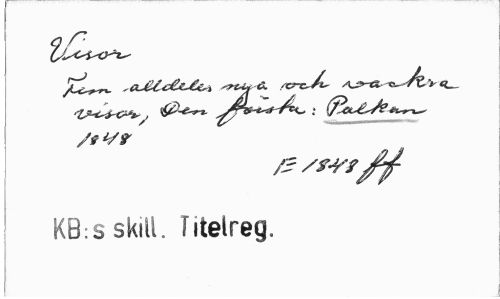 Visor
Fem alldeles nya och vackra
visor, Den första: Polkan
1848
E 1848 ff
KB:s skill. Titelreg.